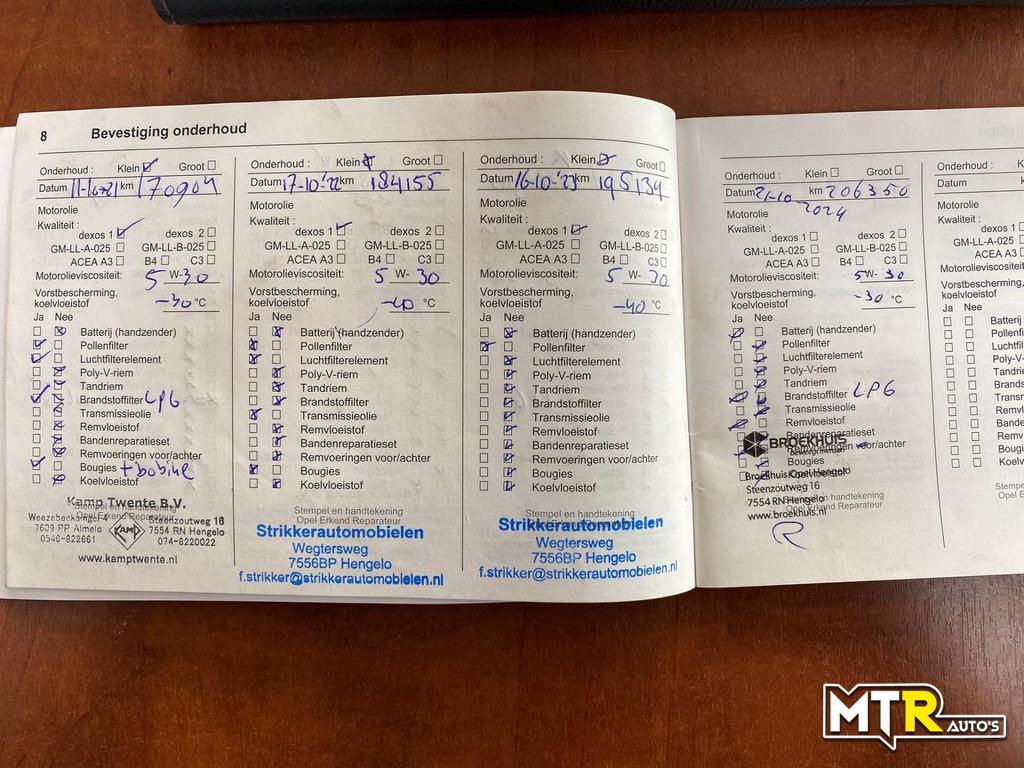 8 Bevestiging onderhoud
Onderhoud : Klein Groot
Datum 11-10-21 km 170904
Motorolie
Kwaliteit :
dexos 1 dexos 2
GM-LL-A-025 GM-LL-B-025
ACEA A3 B4 C3
Motorolieviscositeit: 5 W-30
Vorstbescherming,
koelvloeistof -30 °C
Ja Nee
Batterij (handzender)
Pollenfilter
Luchtfilterelement
Poly-V-riem
Tandriem
Brandstoffilter LPG
Transmissieolie
Remvloeistof
Bandenreparatieset
Remvoeringen voor/achter
Bougies + bobine
Koelvloeistof
Kamp Twente B.V.
Opel Erkend Reparateur
Steenzoutweg 16
7609 PP Almelo KAMP 7554 RN Hengelo
0546-822661 074-8220022
www.kamptwente.nl
Onderhoud : Klein Groot
Datum 17-10-'22 km 184155
Motorolie
Kwaliteit :
dexos 1 dexos 2
GM-LL-A-025 GM-LL-B-025
ACEA A3 B4 C3
Motorolieviscositeit: 5 W- 30
Vorstbescherming,
koelvloeistof -40 °C
Ja Nee
Batterij (handzender)
Pollenfilter
Luchtfilterelement
Poly-V-riem
Tandriem
Brandstoffilter
Transmissieolie
Remvloeistof
Bandenreparatieset
Remvoeringen voor/achter
Bougies
Koelvloeistof
Stempel en handtekening
Opel Erkend Reparateur
Strikkerautomobielen
Wegtersweg
7556BP Hengelo
f.strikker@strikkerautomobielen.nl
Onderhoud : Klein Groot
Datum 16-10-'23 km 195134
Motorolie
Kwaliteit :
dexos 1 dexos 2
GM-LL-A-025 GM-LL-B-025
ACEA A3 B4 C3
Motorolieviscositeit: 5 W- 30
Vorstbescherming,
koelvloeistof -40 °C
Ja Nee
Batterij (handzender)
Pollenfilter
Luchtfilterelement
Poly-V-riem
Tandriem
Brandstoffilter
Transmissieolie
Remvloeistof
Bandenreparatieset
Remvoeringen voor/achter
Bougies
Koelvloeistof
Stempel en handtekening
Opel Erkend Reparateur
Strikkerautomobielen
Wegtersweg
7556BP Hengelo
f.strikker@strikkerautomobielen.nl
Onderhoud : Klein Groot
Datum 21-10 2024 km 206350
Motorolie
Kwaliteit :
dexos 1 dexos 2
GM-LL-A-025 GM-LL-B-025
ACEA A3 B4 C3
Motorolieviscositeit: 5 W- 30
Vorstbescherming,
koelvloeistof -30 °C
Ja Nee
Batterij (handzender)
Pollenfilter
Luchtfilterelement
Poly-V-riem
Tandriem
Brandstoffilter LPG
Transmissieolie
Remvloeistof
Bandenreparatieset
Remvoeringen voor/achter
BROEKHUIS
Bougies
Koelvloeistof
Broekhuis Opel Hengelo
Steenzoutweg 16
Stempel en handtekening
7554 RN Hengelo
Opel Erkend Reparateur
www.broekhuis.nl
Onderhoud :
Datum
Motorolie
Kwaliteit :
GM-LL-A-025
ACEA A3
Motorolieviscositeit:
Vorstbescherming,
koelvloeistof
Ja Nee
MTR AUTO'S